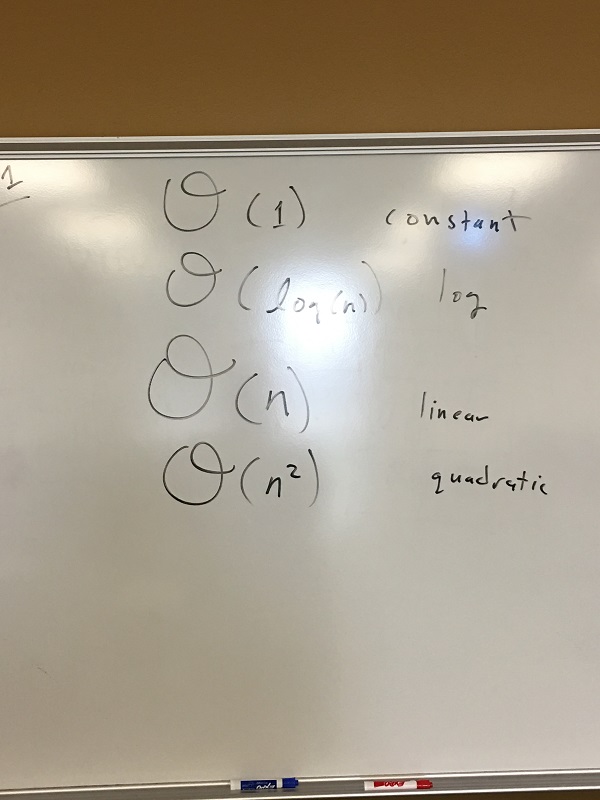 1
O(1) constant
O(log(n)) log
O(n) linear
O(n²) quadratic